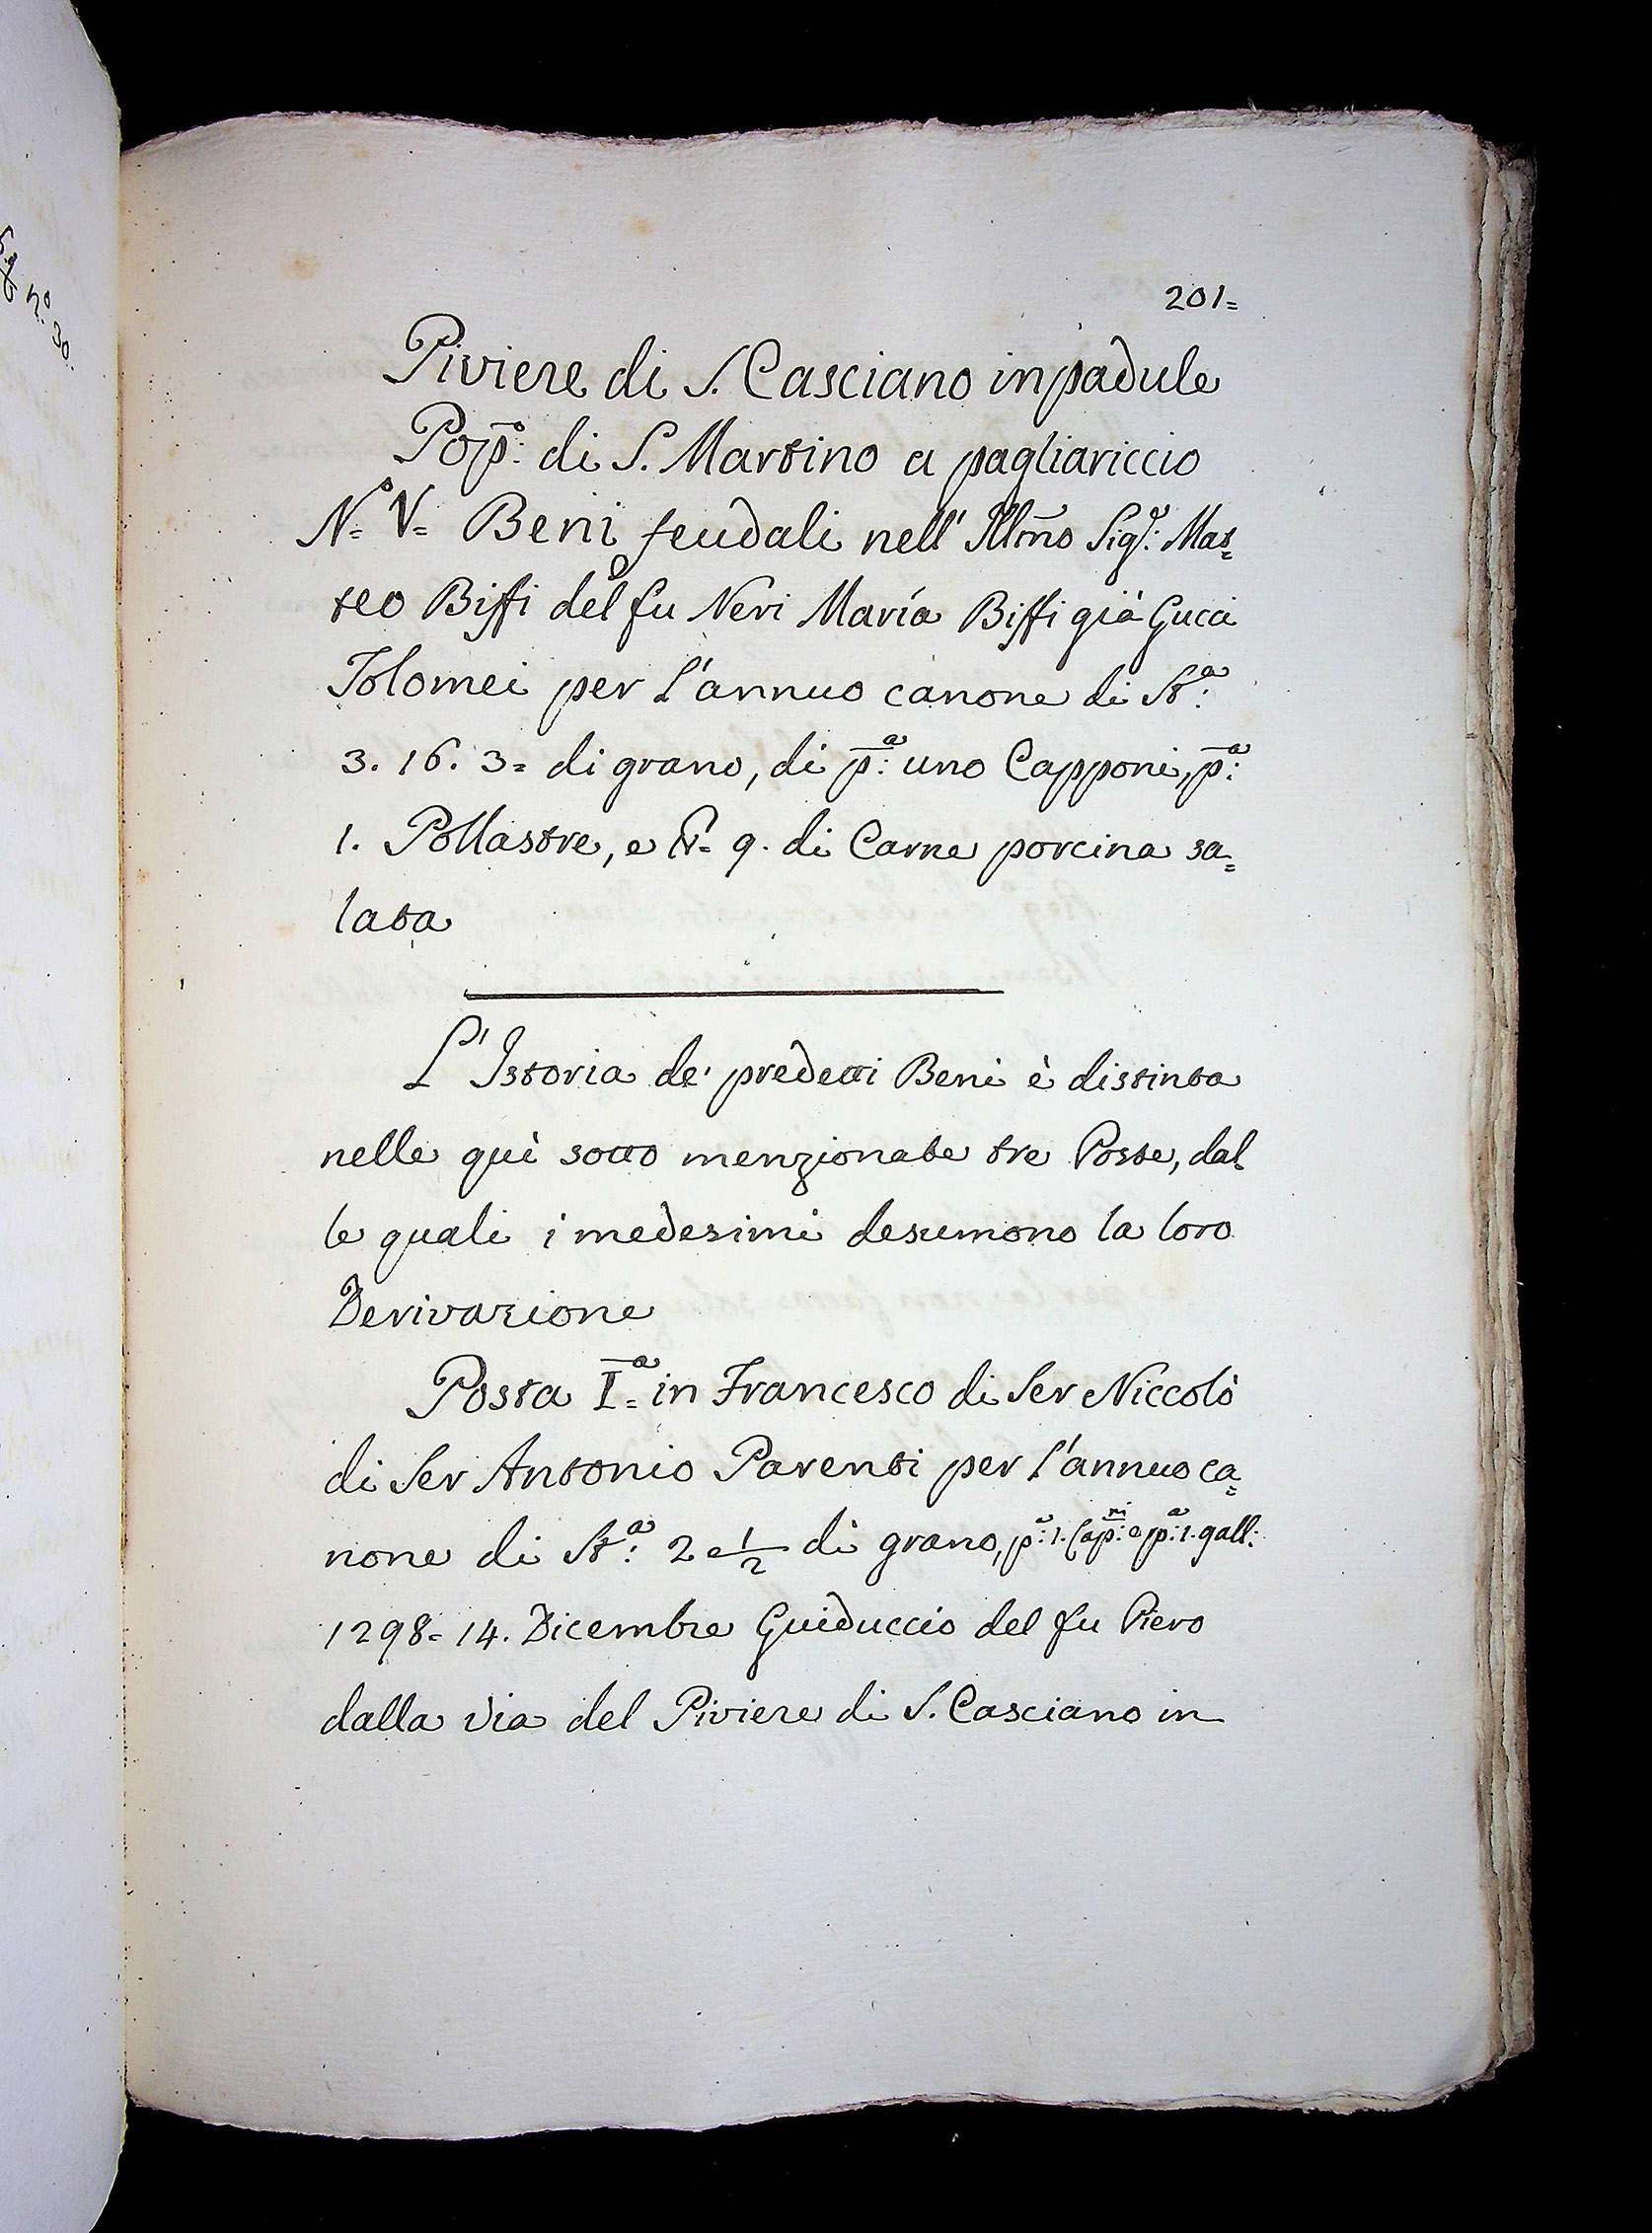 201=
Piviere di S. Casciano in padule
Pop.o: di S. Martino a pagliariccio
N.o V= Beni feudali nell' Illmo Sig.r: Mat=
teo Biffi del fu Neri Maria Biffi già Gucci
Tolomei per l'annuo canone di St.a:
3. 16. 3= di grano, di p.a: uno Capponi, p.a:
1. Pollastre, e 9. di Carne porcina sa=
lata
L' Istoria de' predetti Beni è distinta
nelle quì sotto menzionate tre Poste, dal=
le quali i medesimi desumono la loro
Derivazione
Posta I.a= in Francesco di Ser Niccolò
di Ser Antonio Parenti per l'annuo ca=
none di St.a: 2 e 1/2 di grano, p.a: 1. Cap.ni: e p.a: 1. gall:
1298= 14. Dicembre Guiduccio del fu Piero
dalla Via del Piviere di S. Casciano in
n.o 30.